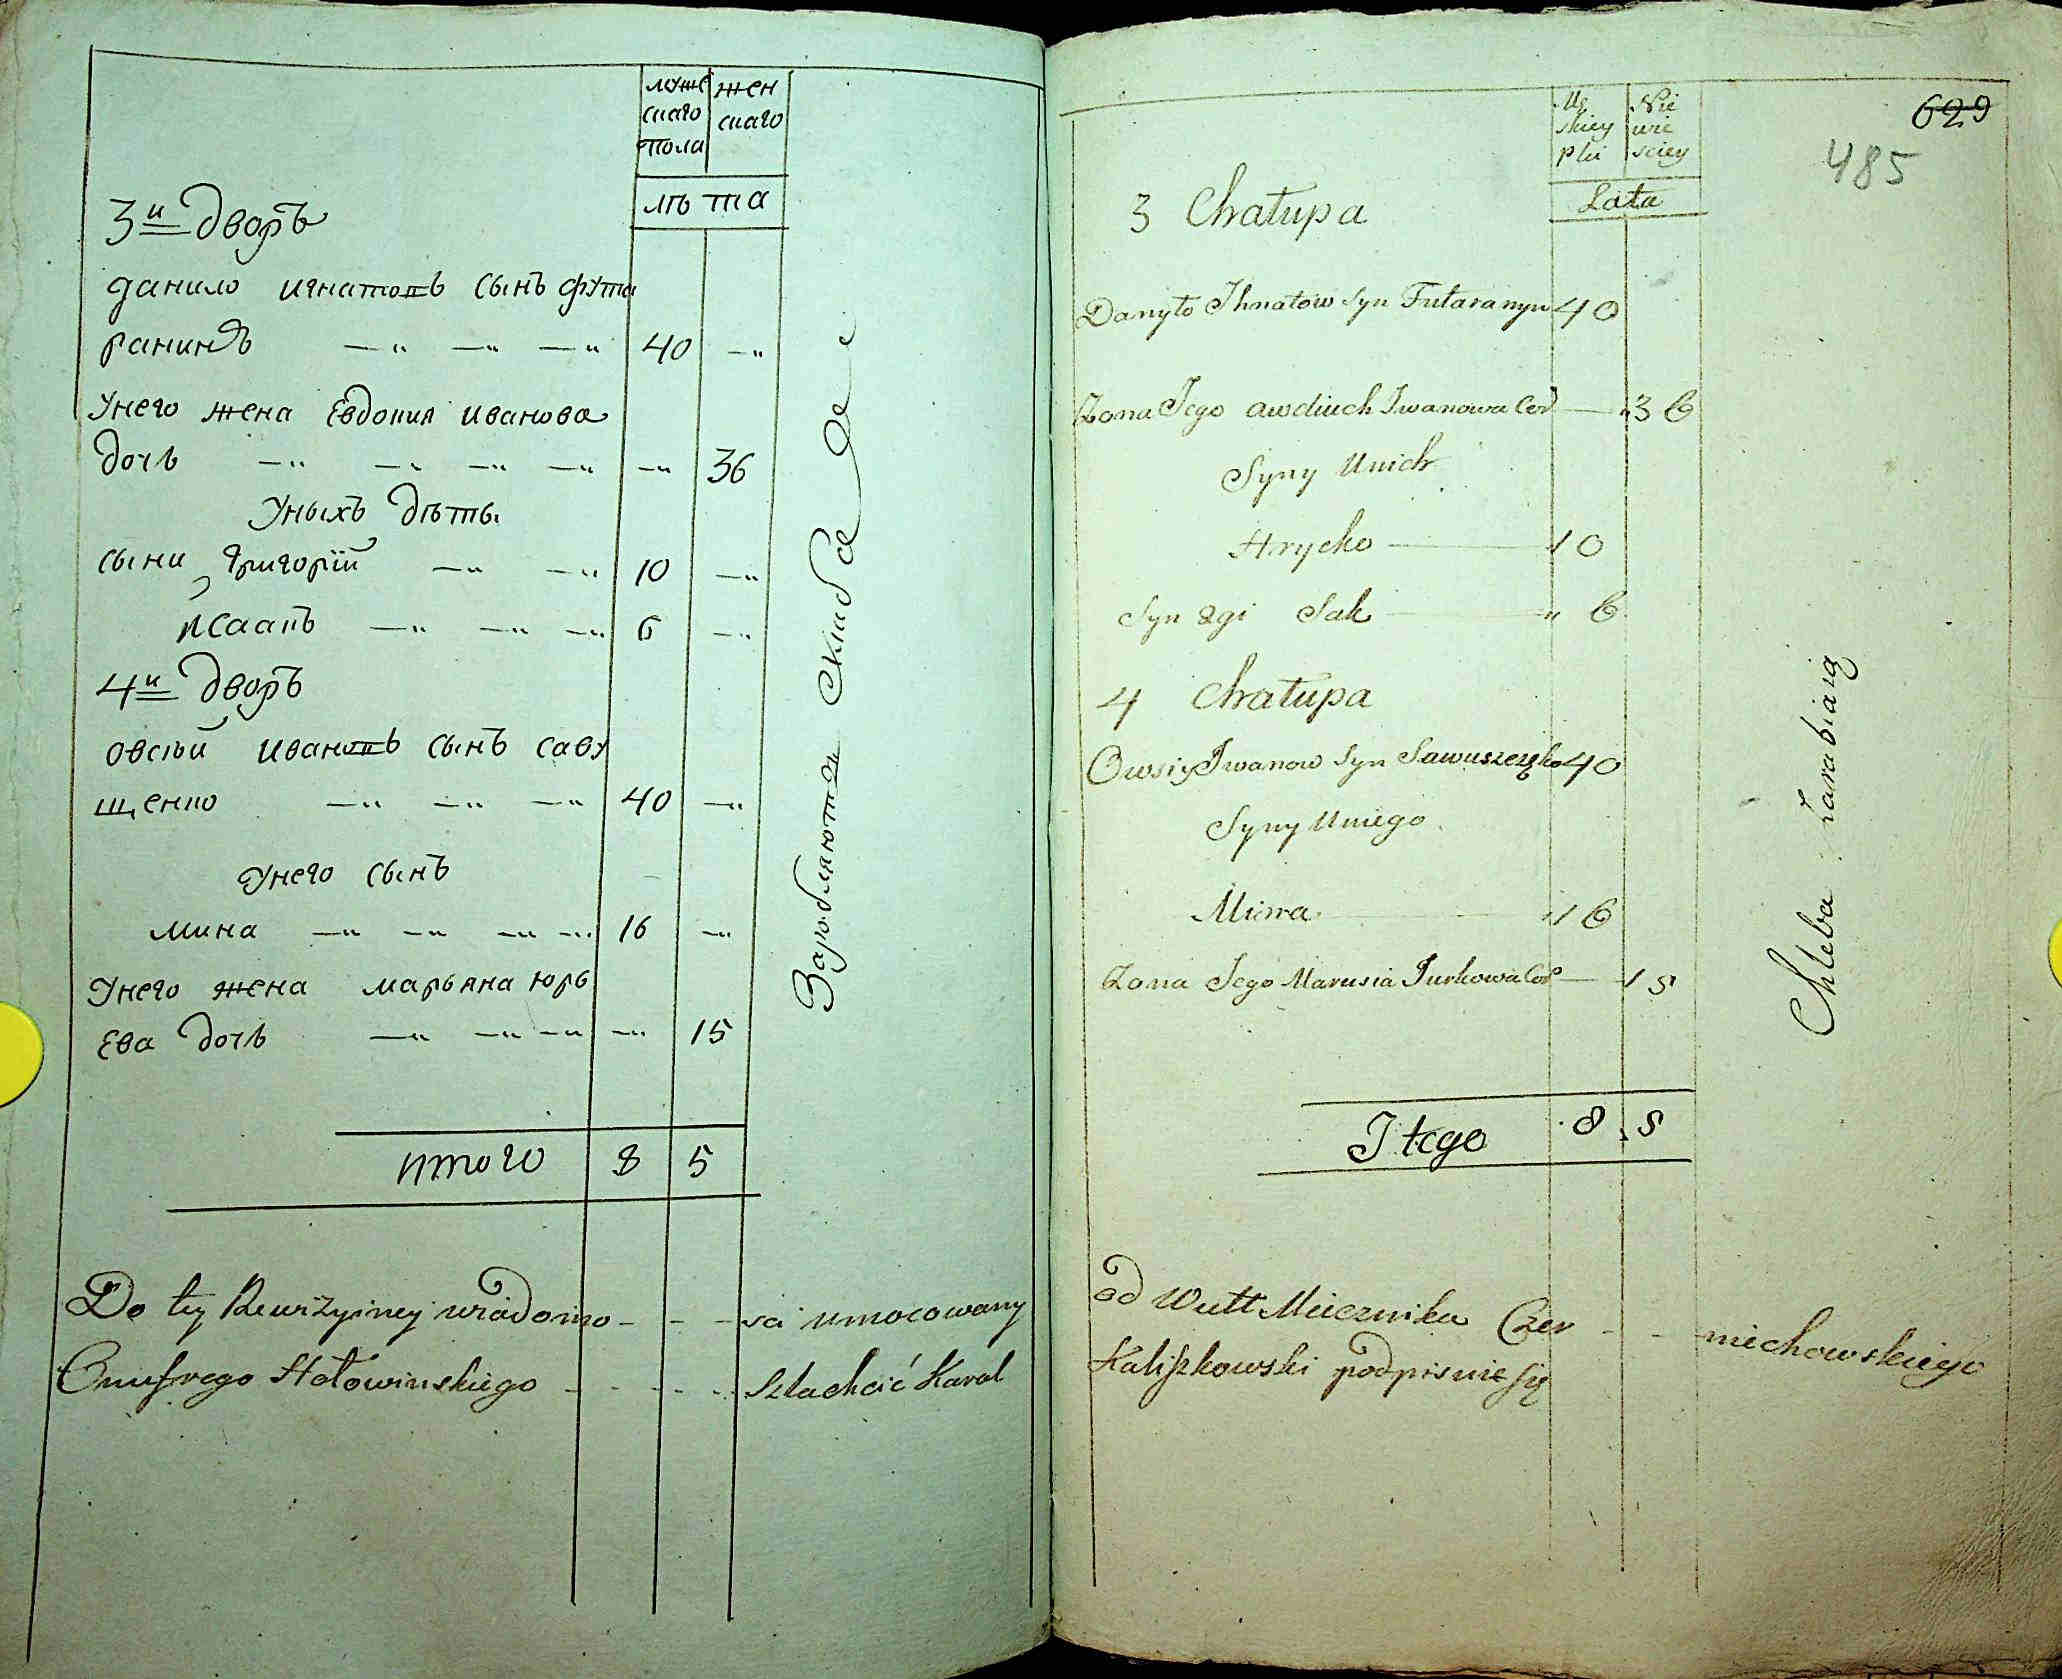 муже
скаго
пола
жен
скаго
лѣта
3й дворъ
данило игнатовъ сынъ фута
ранинъ —„ —„ —„ 40 —„
унего жена Евдокия иванова
дочь —„ —„ —„ —„ —„ 36
уныхъ дѣти
сыни григорїй —„ —„ 10 —„
исаакъ —„ —„ —„ 6 —„
4й дворъ
овсѣй ивановъ сынъ саву
щенко —„ —„ —„ 40 —„
унего сынъ
мина —„ —„ —„ —„ 16 —„
унего жена марьяна юрь
ева дочь —„ —„ —„ —„ 15
итого 8 5
Заробляютъ
Do tey Rewizyiney wiadomo - - - sci umocowany
Onufrego Hołowinskiego - - - - - Szlachcić Karol
629
485
Mę
skiey
płci
Nie
wie
sciey
Lata
3 Chałupa
Danyło Ihnatow syn Futaranyn 40
Zona Jego awdiuch Iwanowa Cor — „36
Syny Unich
Hrycko — 10
Syn 2gi Sak — „ 6
4 Chałupa
Owsiy Iwanow syn Sawuszczenko 40
Syny Uniego
Mina 16
Zona Jego Marusia Jurkowa Cor — 15
Itego 8 5
Chleba Zarabiaią
od Miecznika Czer - - niechowskiego
Kaliszkowski podpisuie się